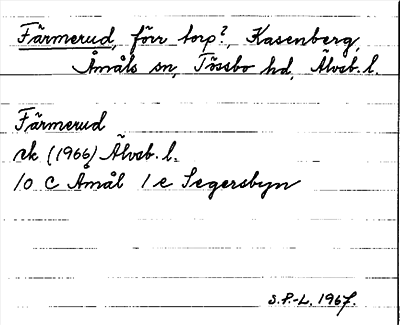 Färmerud, förr torp?, Kasenberg,
Åmåls sn, Tössbo hd, Älvsb. l.
Färmerud
rk (1966) Älvsb. l.
10 C Åmål 1 e Segersbyn
S.P-L. 1967.